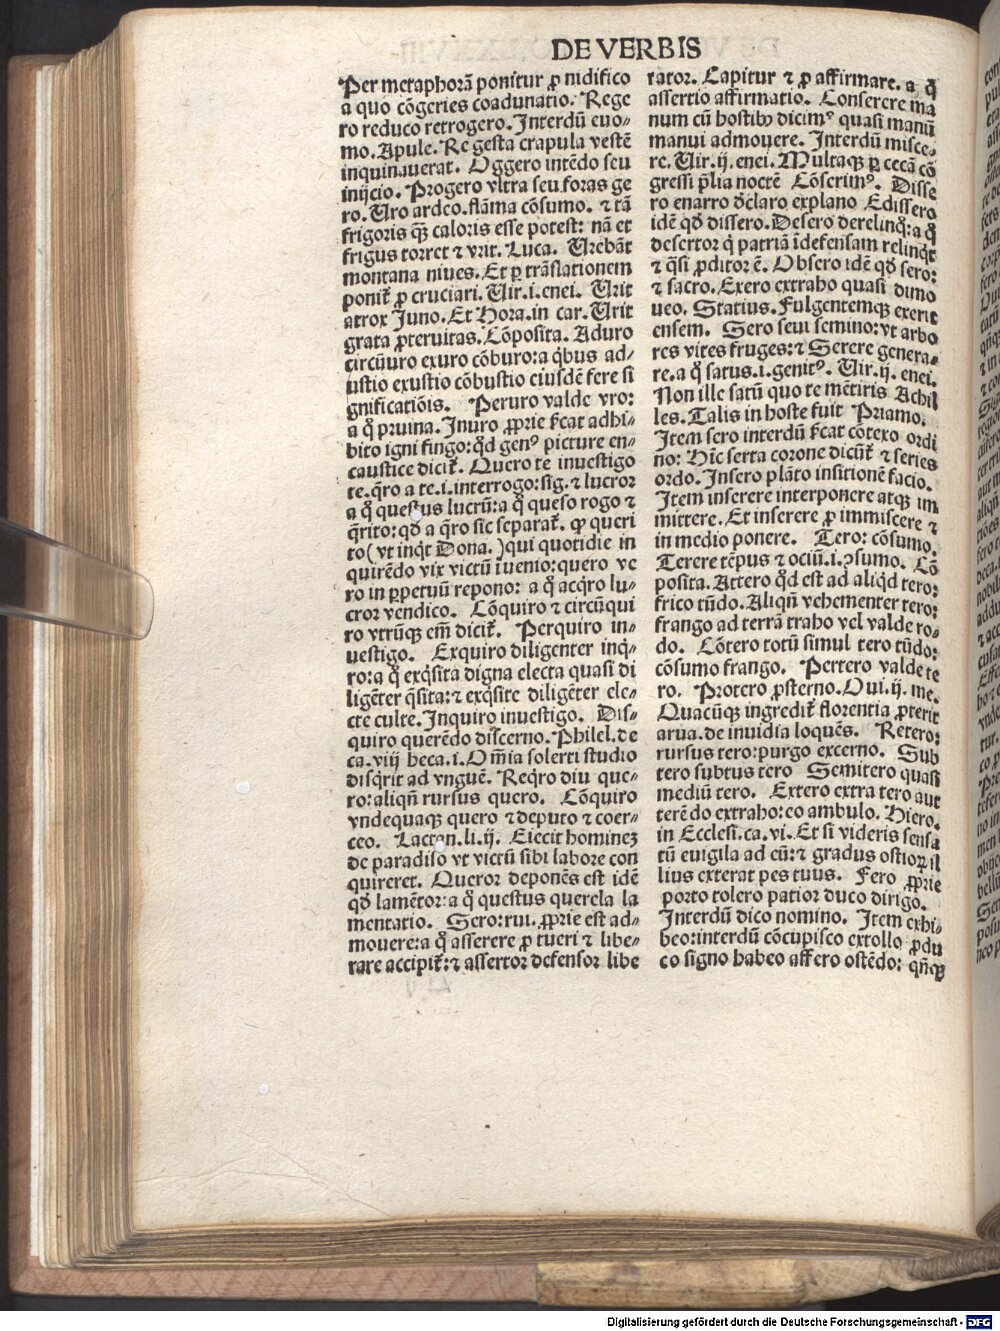 DE VERBIS
Per metaphorā ponitur ꝓ nidifico
a quo cōgeries coadunatio. Rege
ro reduco retrogero. Interdū euo⸗
mo. Apule. Re gesta crapula vestē
inquinauerat. Oggero intēdo seu
inijcio. Progero vltra seu foras ge
ro. Uro ardeo. flāma cōsumo. ⁊ tā
frigoris qꝫ caloris esse potest: nā et
frigus torret ⁊ vrit. Luca. Urebāt
montana niues. Et ꝑ trāslationem
ponit᷑ ꝓ cruciari. Uir. i. enei. Urit
atrox Juno. Et Hora. in car. Urit
grata ꝓteruitas. Cōposita. Aduro
circūuro exuro cōburo: a q̇bus ad⸗
ustio exustio cōbustio eiusdē fere si
gnificatiōis. Peruro valde vro:
a q̊ pruina. Inuro ꝓprie fͥcat adhi⸗
bito igni fingo: qd̓ genꝰ picture en⸗
caustice dicit᷑. Quero te inuestigo
te. q̄ro a te. i. interrogo: sig. ⁊ lucror
a q̊ questus lucrū: a q̊ queso rogo ⁊
q̄rito: qd̓ a q̄ro sic separat᷑. ꝙ queri
to (vt inq̇t Dona.) qui quotidie in
quirēdo vix victū iuenio: quero ve
ro in ꝑpetuū repono: a q̊ acq̇ro lu⸗
cror vendico. Cōquiro ⁊ circūqui
ro vtrūqꝫ em̄ dicit᷑. Perquiro in⸗
uestigo. Exquiro diligenter inq̇⸗
ro: a q̊ exq̇sita digna electa quasi di
ligēter q̇sita: ⁊ exq̇site diligēter ele⸗
cte culte. Inquiro inuestigo. Dis⸗
quiro querēdo discerno. Philel. de
ca. viij beca. i. Om̄ia solerti studio
disq̇rit ad vnguē. Req̇ro diu que⸗
ro: aliqn̄ rursus quero. Cōquiro
vndequaqꝫ quero ⁊ deputo ⁊ coer⸗
ceo. Lactan. li. ij. Eiecit hominez
de paradiso vt victū sibi labore con
quireret. Queror deponēs est idē
qd̓ lamētor: a q̊ questus querela la
mentatio. Sero: rui. ꝓprie est ad⸗
mouere: a q̊ asserere ꝓ tueri ⁊ libe⸗
rare accipit᷑: ⁊ assertor defensor libe
rator. Capitur ⁊ ꝓ affirmare. a q̊
assertio affirmatio. Conserere ma
num cū hostibꝫ dicimꝰ quasi manū
manui admouere. Interdū misce⸗
re. Uir. ij. enei. Multaqꝫ ꝑ cecā cō
gressi p̄lia noctē Cōserimꝰ. Disse
ro enarro d̓claro explano Edissero
idē qd̓ dissero. Desero derelinq̊: a q̊
desertor q̇ patriā īdefensam relinq̇t
⁊ q̄si ꝓditor ē. Obsero idē qd̓ sero:
⁊ sacro. Exero extraho quasi dimo
ueo. Statius. Fulgentemqꝫ exerit
ensem. Sero seui semino: vt arbo
res vites fruges: ⁊ Serere genera⸗
re. a q̊ satus. i. genitꝰ. Uir. ij. enei.
Non ille satū quo te mētiris Achil
les. Talis in hoste fuit Priamo.
Item sero interdū fͥcat cōtexo ordi
no: Hīc serta corone dicūt᷑ ⁊ series
ordo. Insero plāto insitionē facio.
Item inserere interponere atqꝫ im
mittere. Et inserere ꝓ immiscere ⁊
in medio ponere. Tero: cōsumo.
Terere tēpus ⁊ ociū. i. ꝯsumo. Cō
posita. Attero qd̓ est ad aliqd̓ tero:
frico tūdo. Aliqn̄ vehementer tero:
frango ad terrā traho vel valde ro⸗
do. Cōtero totū simul tero tūdo:
cōsumo frango. Pertero valde te
ro. Protero ꝓsterno. Oui. ij. me.
Quacūqꝫ ingredit᷑ florentia ꝓterit
arua. de inuidia loquēs. Retero:
rursus tero: purgo excerno. Sub
tero subtus tero Semitero quasi
mediū tero. Extero extra tero aut
terēdo extraho: co ambulo. Hiero.
in Ecclesi. ca. vi. Et si videris sensa
tū euigila ad eū: ⁊ gradus ostioꝝ il
lius exterat pes tuus. Fero ꝓprie
porto tolero patior duco dirigo.
Interdū dico nomino. Item exhi⸗
beo: interdū cōcupisco extollo ꝓdu
co signo habeo affero ostēdo: qn̄qꝫ
Digitalisierung gefördert durch die Deutsche Forschungsgemeinschaft - DFG